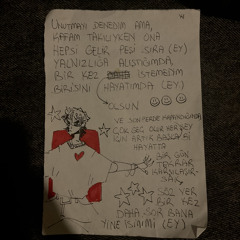 4
UNUTMAYI DENEDİM AMA,
KAFAM TAKILIYKEN ONA
HEPSİ GELİR PEŞİ SIRA (EY)
YALNIZLIĞA ALIŞTIĞIMDA
BİR KEZ İSTEMEDİM
BİRİSİNİ (HAYATIMDA EY)
OLSUN
VE SON PERDE KAPANDIĞINDA
ÇOK GEÇ OLUR HERŞEY
İÇİN ARTIK BAŞKA Bİ
HAYATTA
BİR GÜN
TEKRAR
KARŞILAŞIR
SAK
SÖZ VER
BİR KEZ
DAHA SOR BANA
YİNE İSMİMİ (EY)